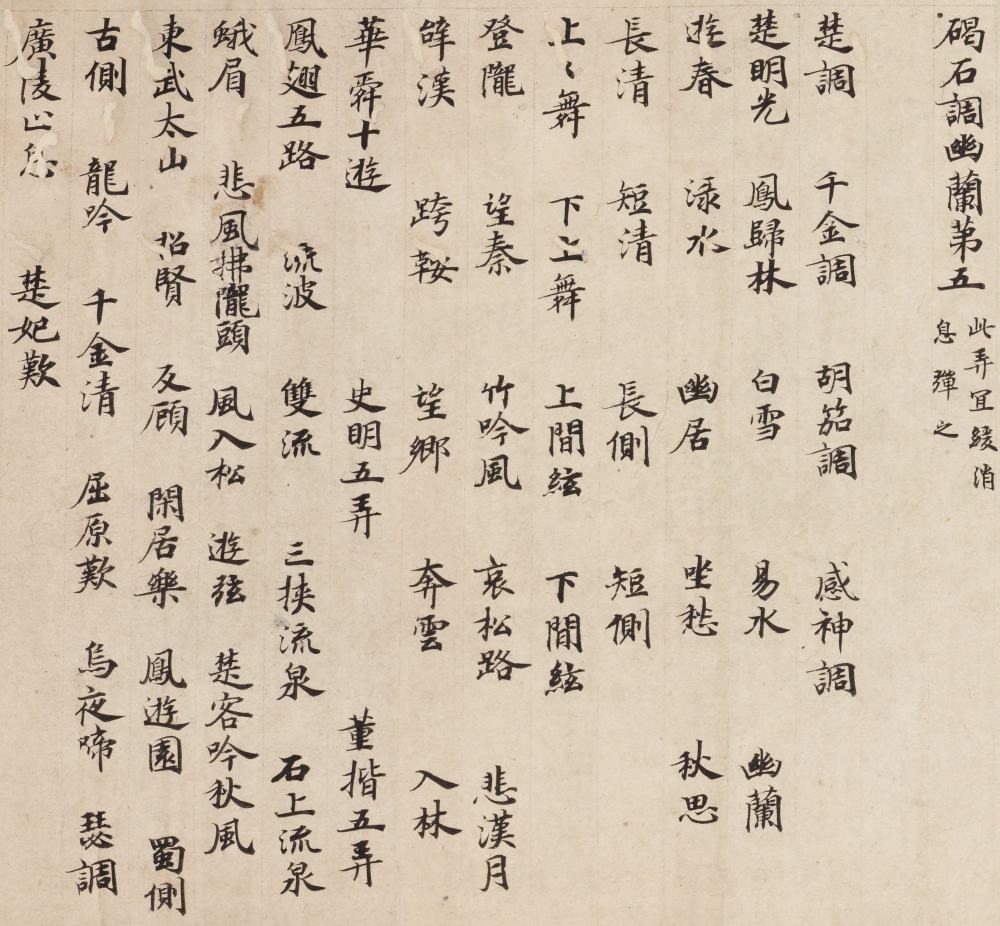 碣石調幽蘭第五 此弄宜緩消
息彈之
楚調 千金調 胡笳調 感神調
楚明光 鳳歸林 白雪 易水 幽蘭
遊春 淥水 幽居 坐愁 秋思
長清 短清 長側 短側
上〻舞 下上舞 上間絃 下間絃
登隴 望秦 竹吟風 哀松路 悲漢月
辞漢 跨鞍 望鄉 奔雲 入林
華舜十遊 史明五弄 董揩五弄
鳳翅五路 流波 雙流 三挾流泉 石上流泉
蛾眉 悲風拂隴頭 風入松 遊弦 楚客吟秋風
東武太山 招賢 反顧 閑居樂 鳳遊園 蜀側
古側 龍吟 千金清 屈原歎 烏夜啼 瑟調
廣陵止息 楚妃歎